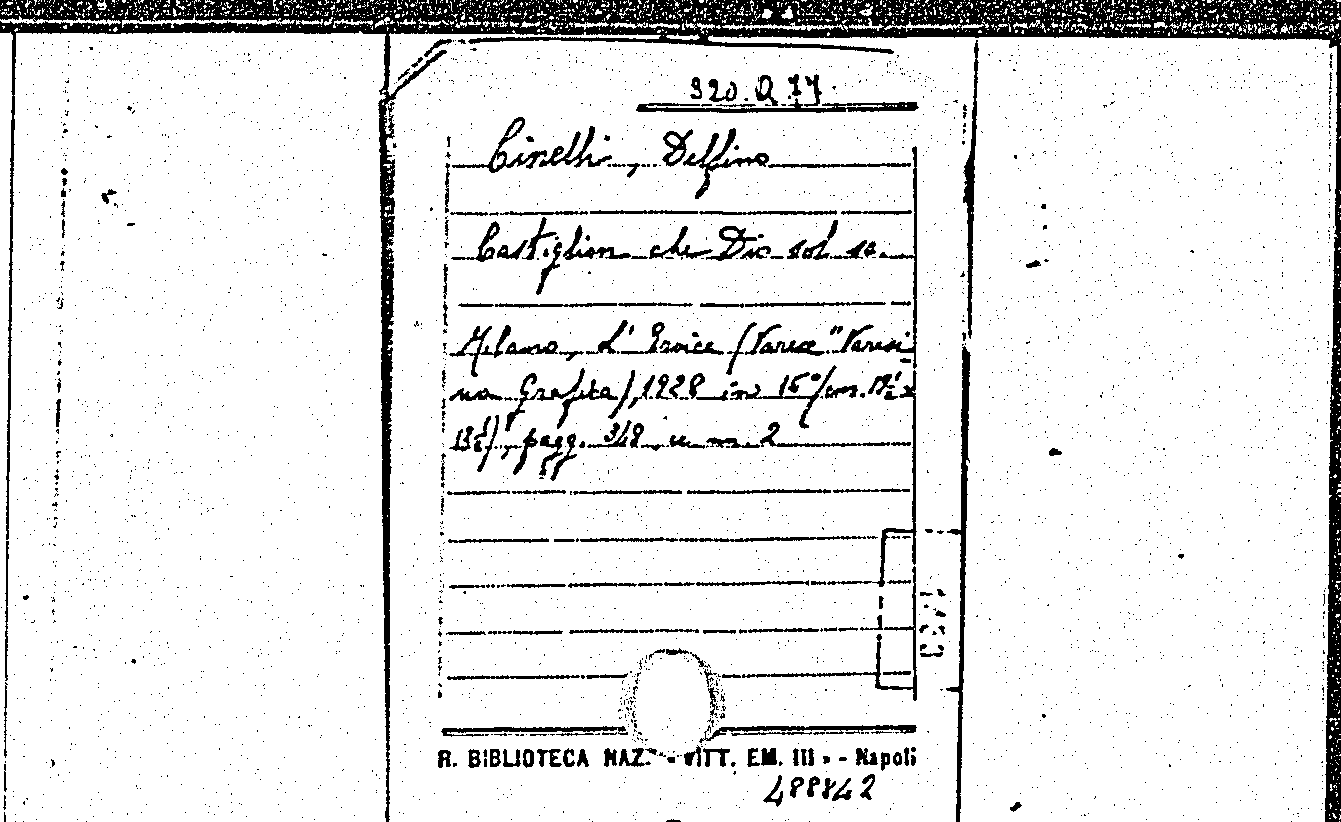 320. Q 77.
Cinelli, Delfino
Castiglion che Dio sol sa.
Milano, L' Eroica (Varese "Varesi
na Grafica), 1928 in 16° (cm. 19½ x
13½), pagg. 348 n. 2
R. BIBLIOTECA NAZ. « VITT. EM. III » - Napoli
488842